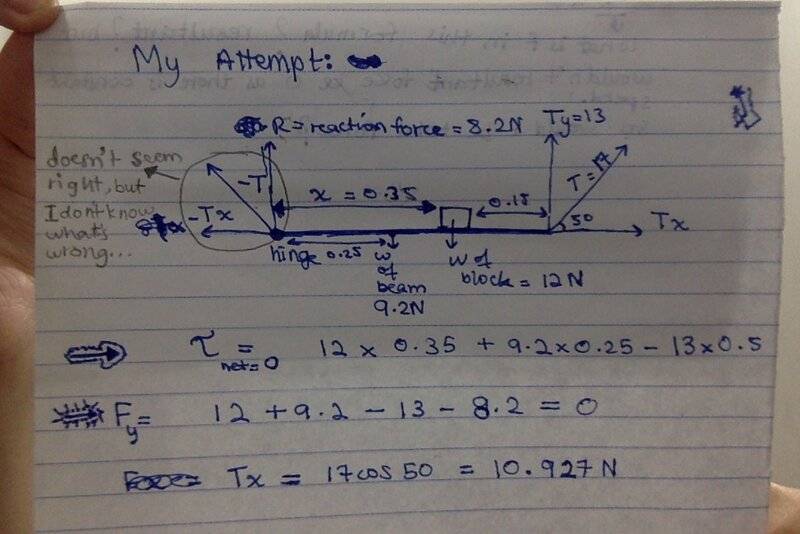 My Attempt:
R = reaction force = 8.2N
Ty = 13
doesn't seem
right, but
I don't know
what's
wrong...
-T
x = 0.35
0.15
T = 17
-Tx
50
Tx
hinge
0.25
w
of
beam
9.2N
w of
block = 12N
τ net=0 = 12 x 0.35 + 9.2 x 0.25 - 13 x 0.5
Fy = 12 + 9.2 - 13 - 8.2 = 0
Tx = 17cos 50 = 10.927N